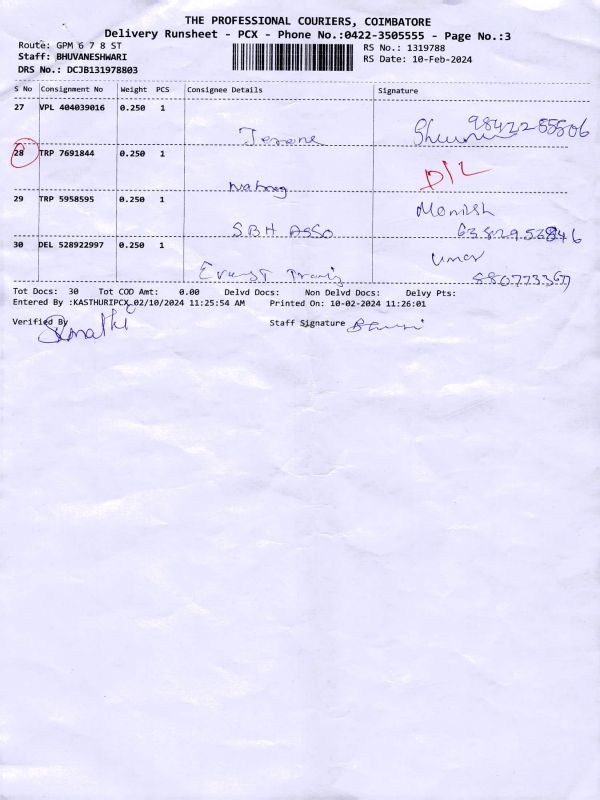 THE PROFESSIONAL COURIERS, COIMBATORE
Delivery Runsheet - PCX - Phone No.:0422-3505555 - Page No.:3
Route: GPM 6 7 8 ST RS No.: 1319788
Staff: BHUVANESHWARI RS Date: 10-Feb-2024
DRS No.: DCJB131978803
S No Consignment No Weight PCS Consignee Details Signature
27 VPL 404039016 0.250 1
Jerome 9842255506
28 TRP 7691844 0.250 1
D/L
29 TRP 5958595 0.250 1 Monish
SBH ASSO
30 DEL 528922997 0.250 1 Umar
Tot Docs: 30 Tot COD Amt: 0.00 Delvd Docs: Non Delvd Docs: Delvy Pts:
Entered By :KASTHURIPCX 02/10/2024 11:25:54 AM Printed On: 10-02-2024 11:26:01
Verified By Staff Signature